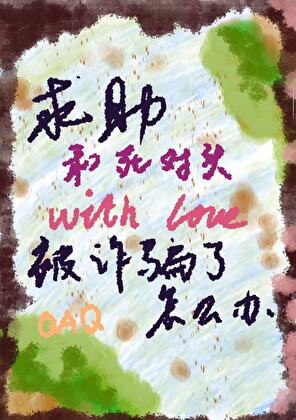 求助
和死对头
with love
被诈骗了
QAQ 怎么办.